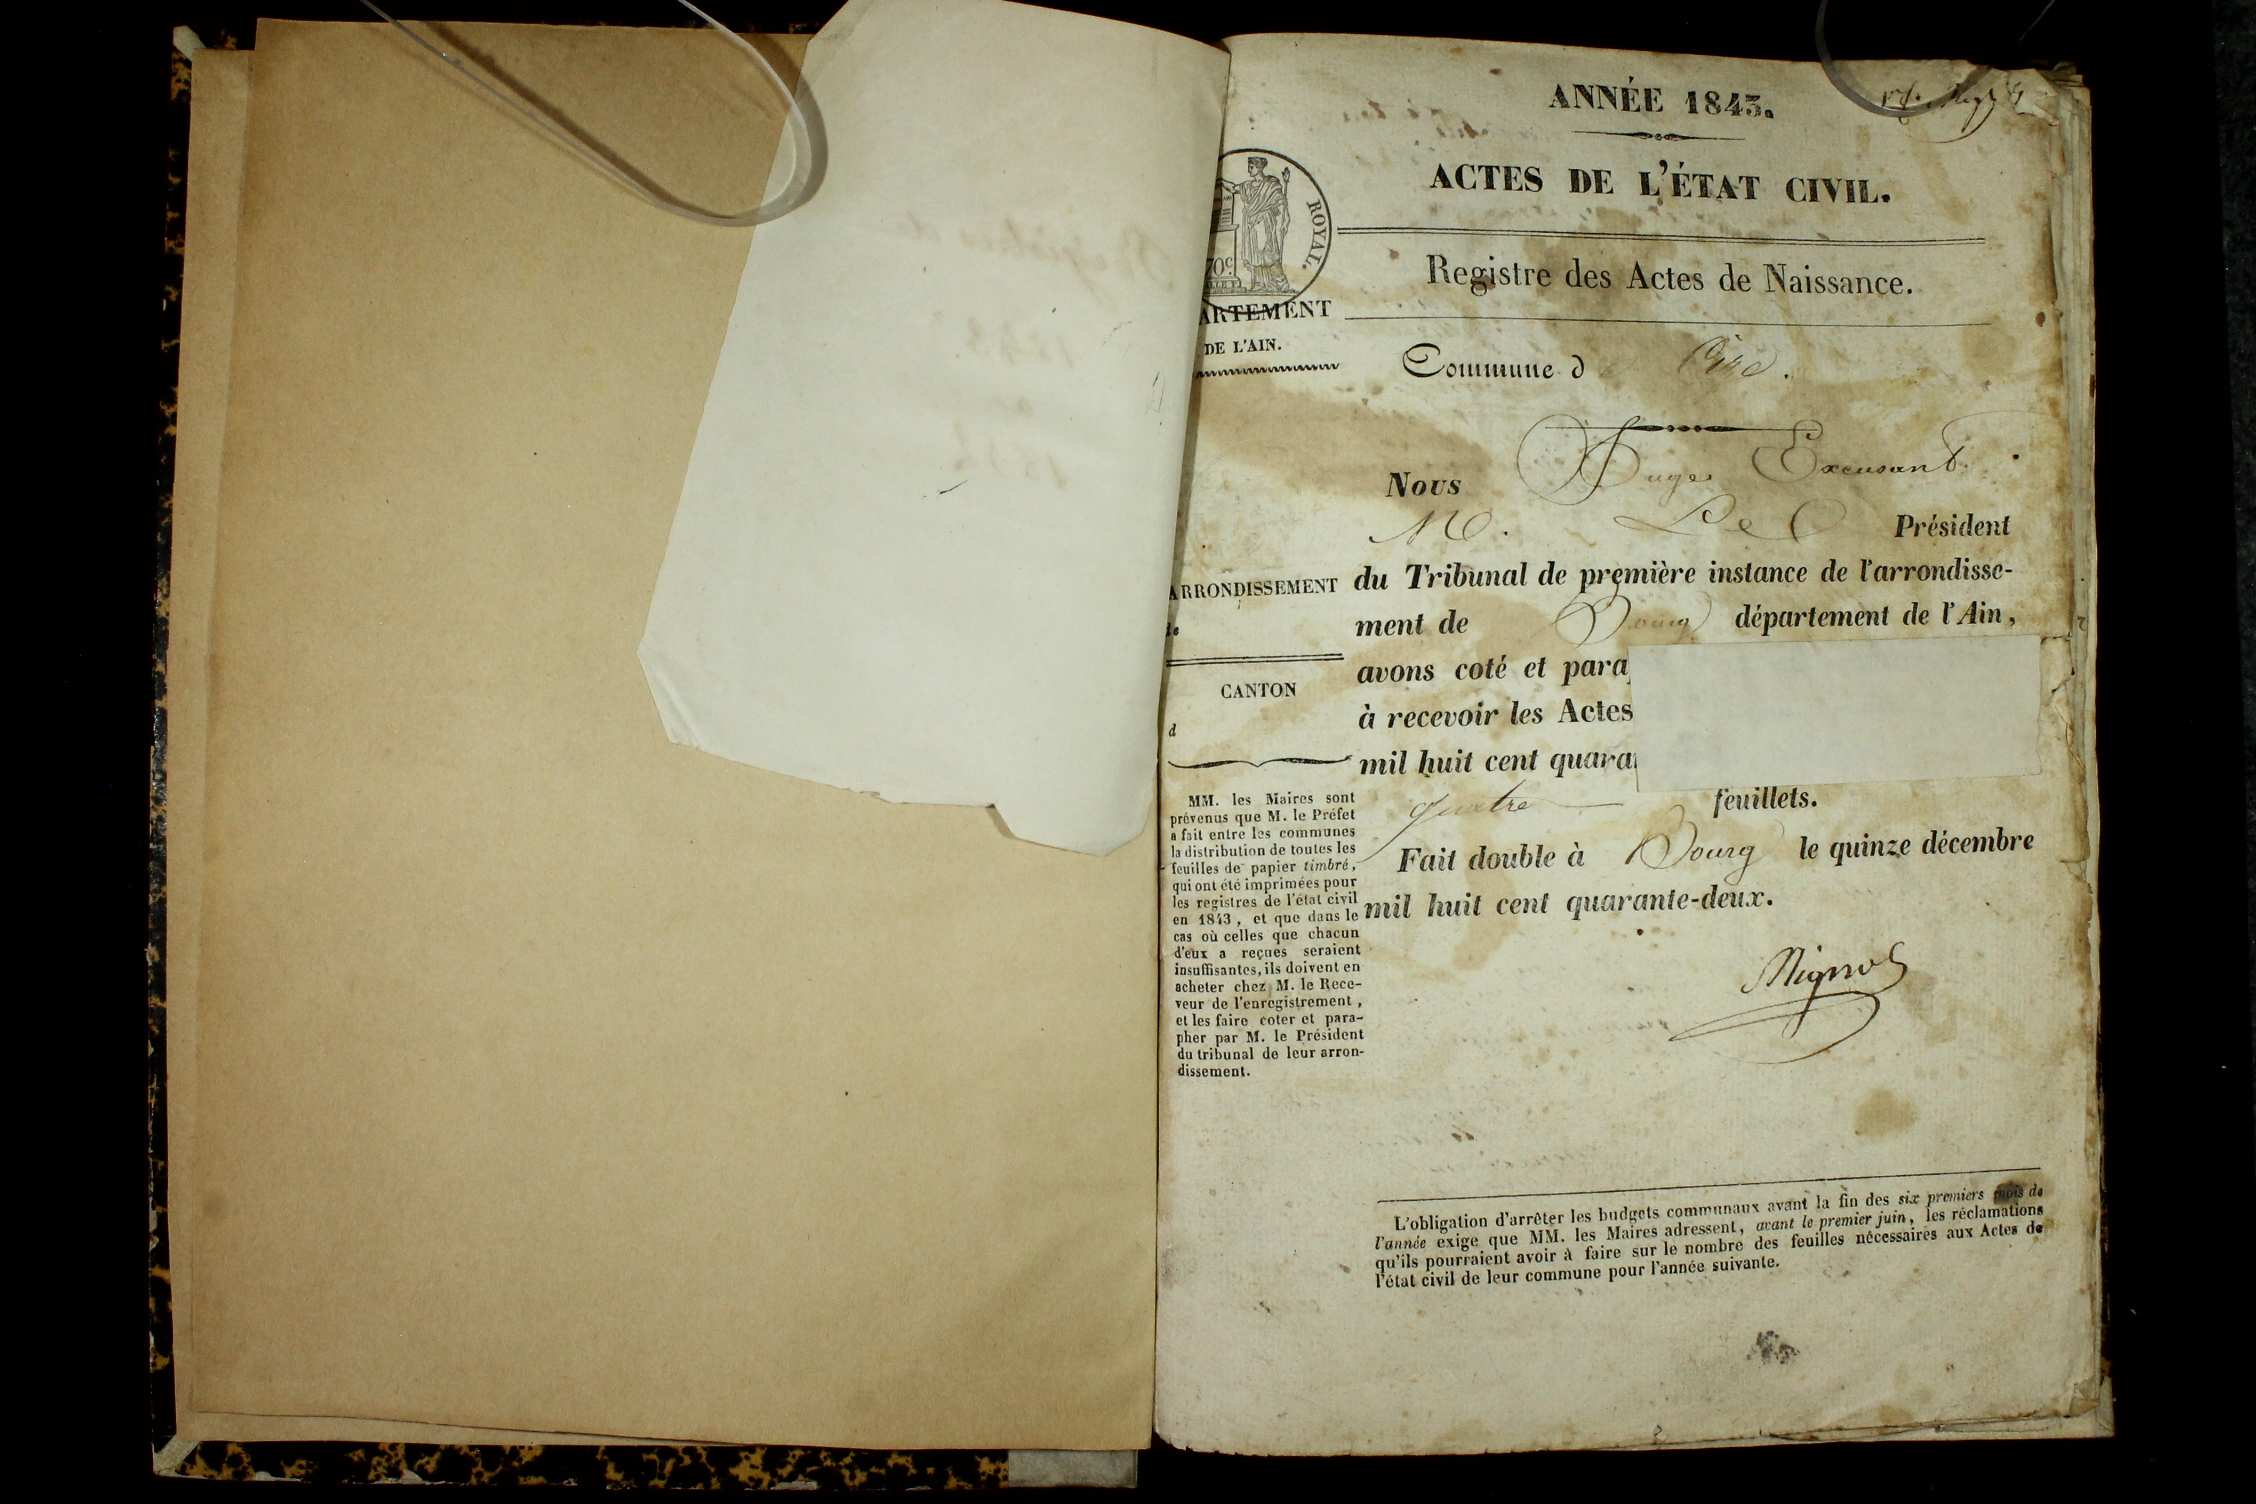 ANNÉE 1843.
ACTES DE L'ÉTAT CIVIL.
ROYAL.
70 c.
Registre des Actes de Naissance.
ARTEMENT
DE L'AIN.
Commune d
Nous Juge
M. Le Président
ARRONDISSEMENT
du Tribunal de première instance de l'arrondisse-
ment de Bourg département de l'Ain,
avons coté et para
CANTON
d
à recevoir les Actes
mil huit cent quara
quatre feuillets.
Fait double à Bourg le quinze décembre
mil huit cent quarante-deux.
MM. les Maires sont
prévenus que M. le Préfet
a fait entre les communes
la distribution de toutes les
feuilles de papier timbré,
qui ont été imprimées pour
les registres de l'état civil
en 1843, et que dans le
cas où celles que chacun
d'eux a reçues seraient
insuffisantes, ils doivent en
acheter chez M. le Rece-
veur de l'enregistrement,
et les faire coter et para-
pher par M. le Président
du tribunal de leur arron-
dissement.
L'obligation d'arrêter les budgets communaux avant la fin des six premiers mois de
l'année exige que MM. les Maires adressent, avant le premier juin, les réclamations
qu'ils pourraient avoir à faire sur le nombre des feuilles nécessaires aux Actes de
l'état civil de leur commune pour l'année suivante.